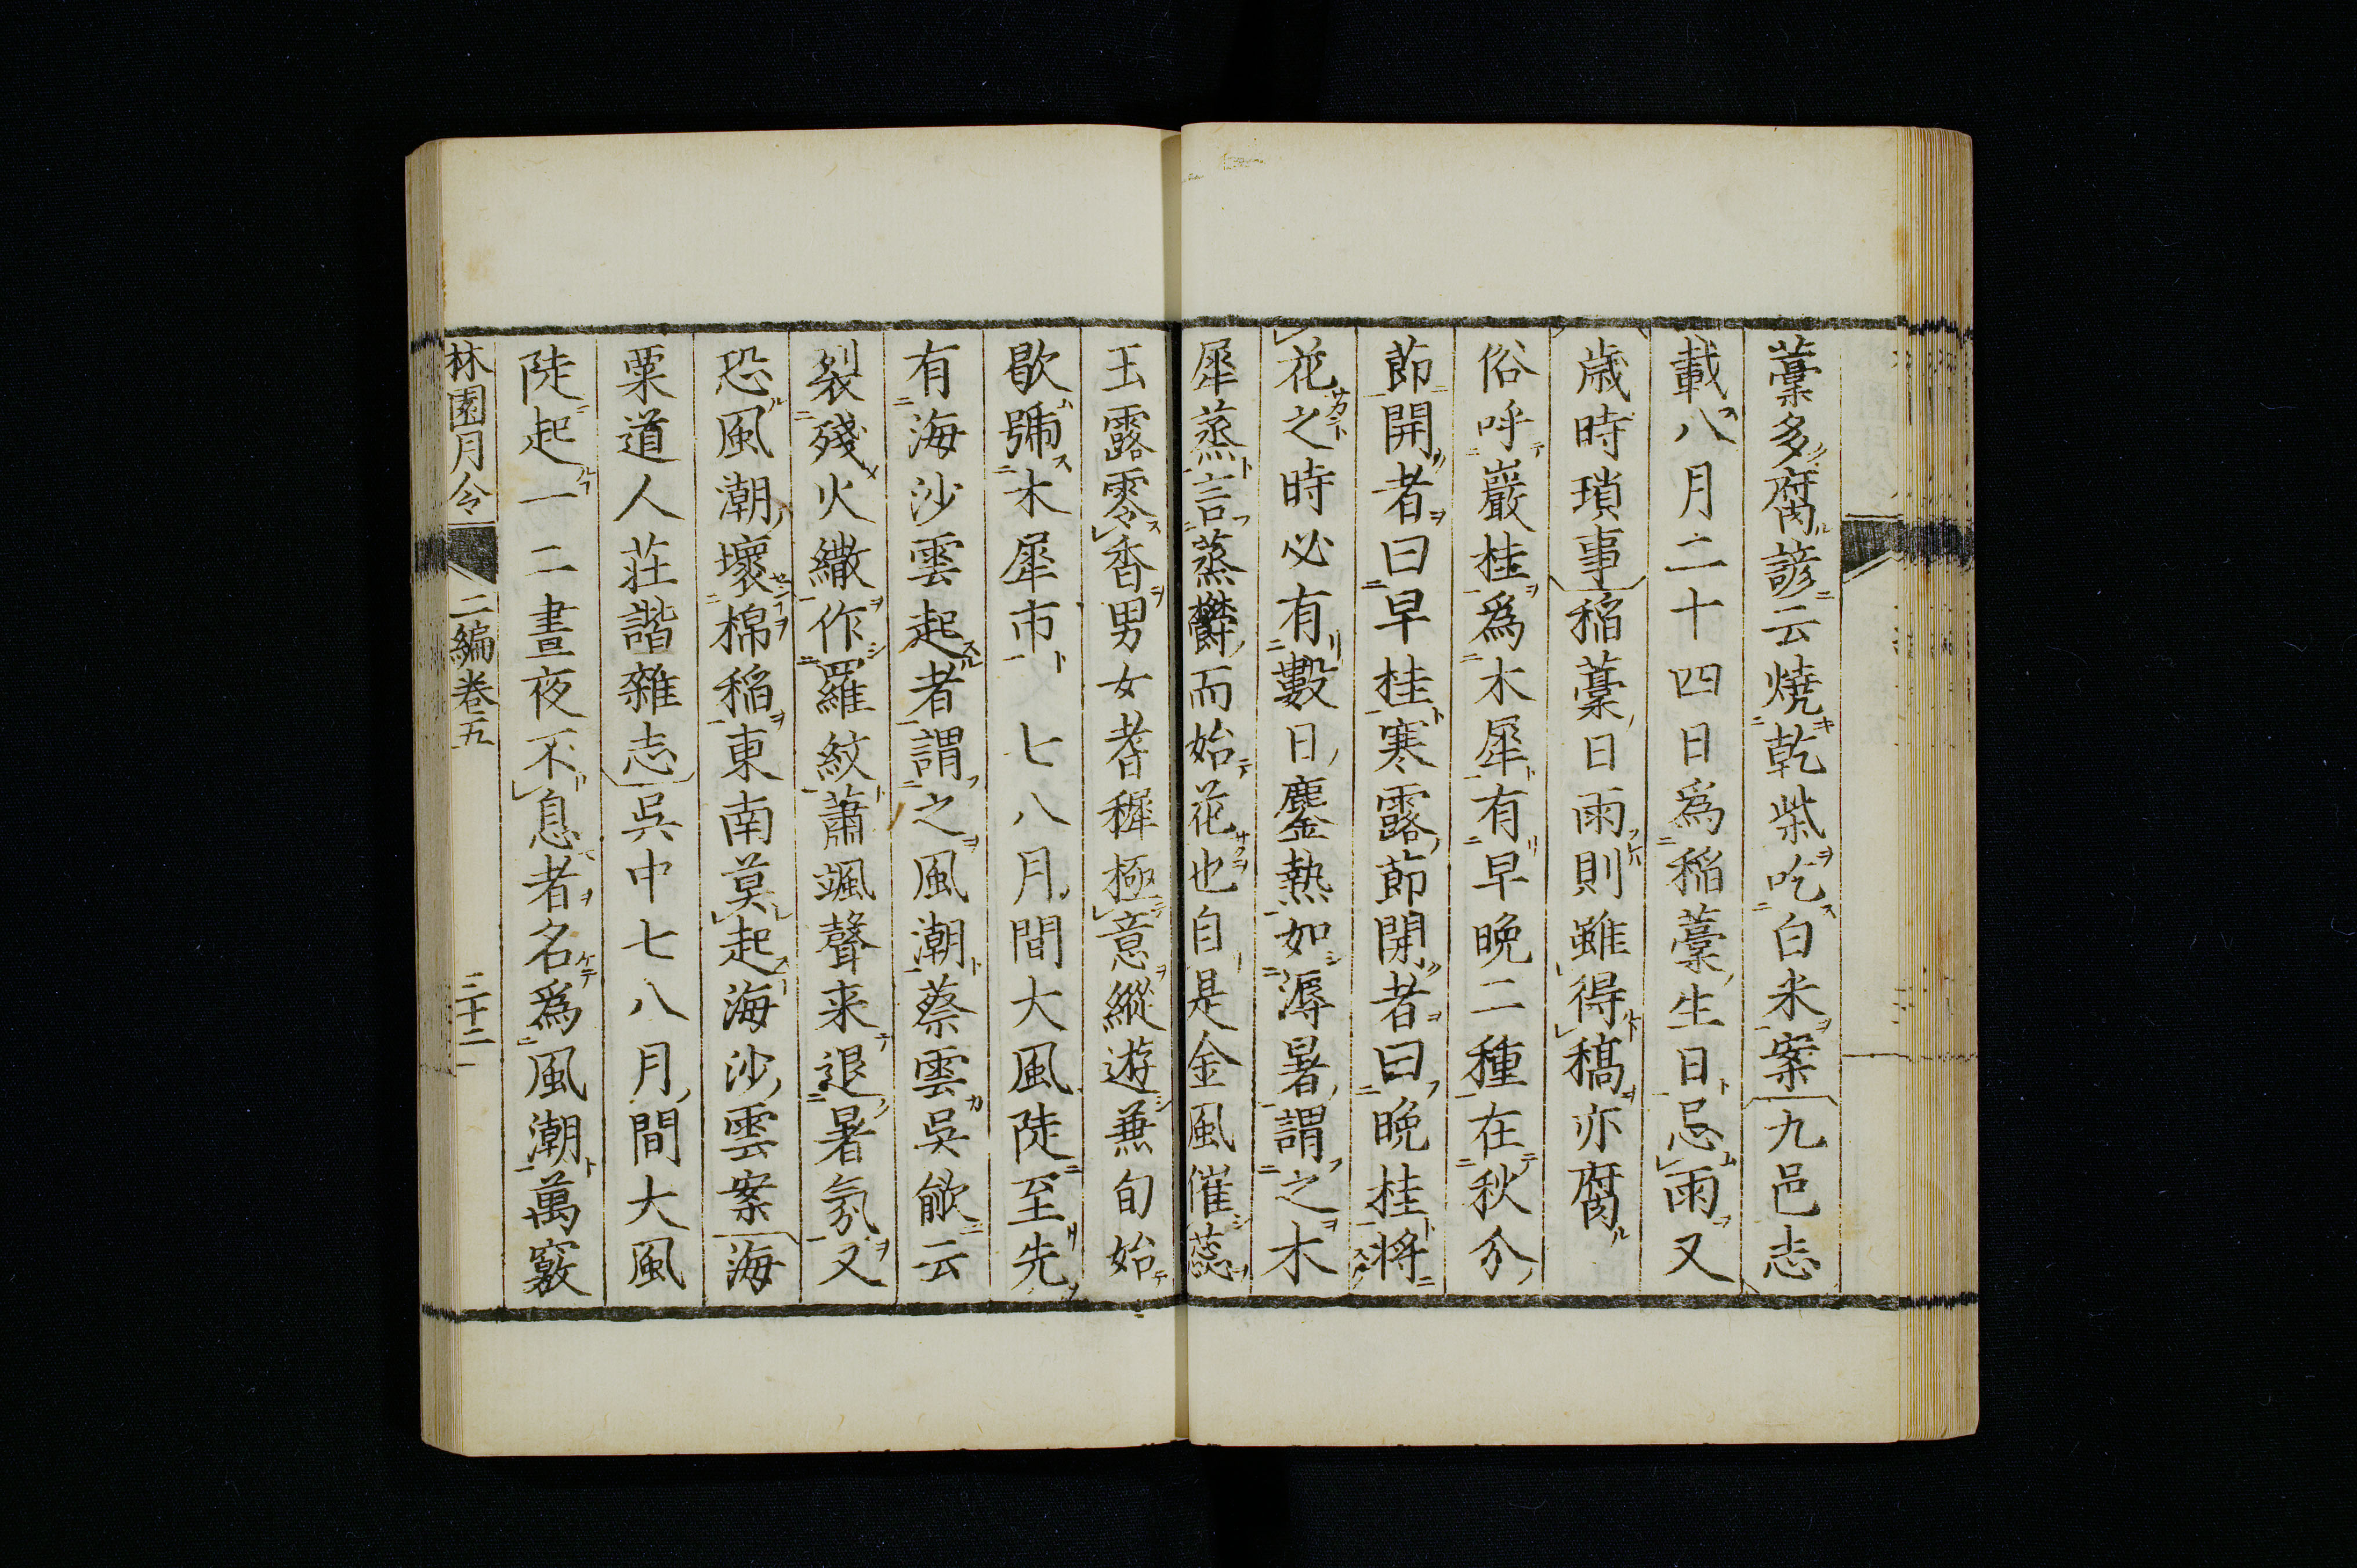 藁多腐諺云燒乾柴吃白米案九邑志
載八月二十四日爲稲藁生日忌雨又
歳時瑣事稲藁日雨則雖得稿亦腐
俗呼巖桂爲木犀有早晩二種在秋分
節開者曰早桂寒露節開者曰晩桂将
花之時必有數日鏖熱如溽暑謂之木
犀蒸言蒸鬱而始花也自是金風催蕊
玉露零香男女耆稺極意縱遊兼旬始
歇號木犀市 七八月間大風陡至先
有海沙雲起者謂之風潮蔡雲吳歈云
裂殘火繖作羅紋蕭颯聲来退暑氛又
恐風潮壞棉稲東南莫起海沙雲案海
粟道人莊諧雜志吳中七八月間大風
陡起一二晝夜不息者名爲風潮萬竅
林園月令 二編卷五 三十二